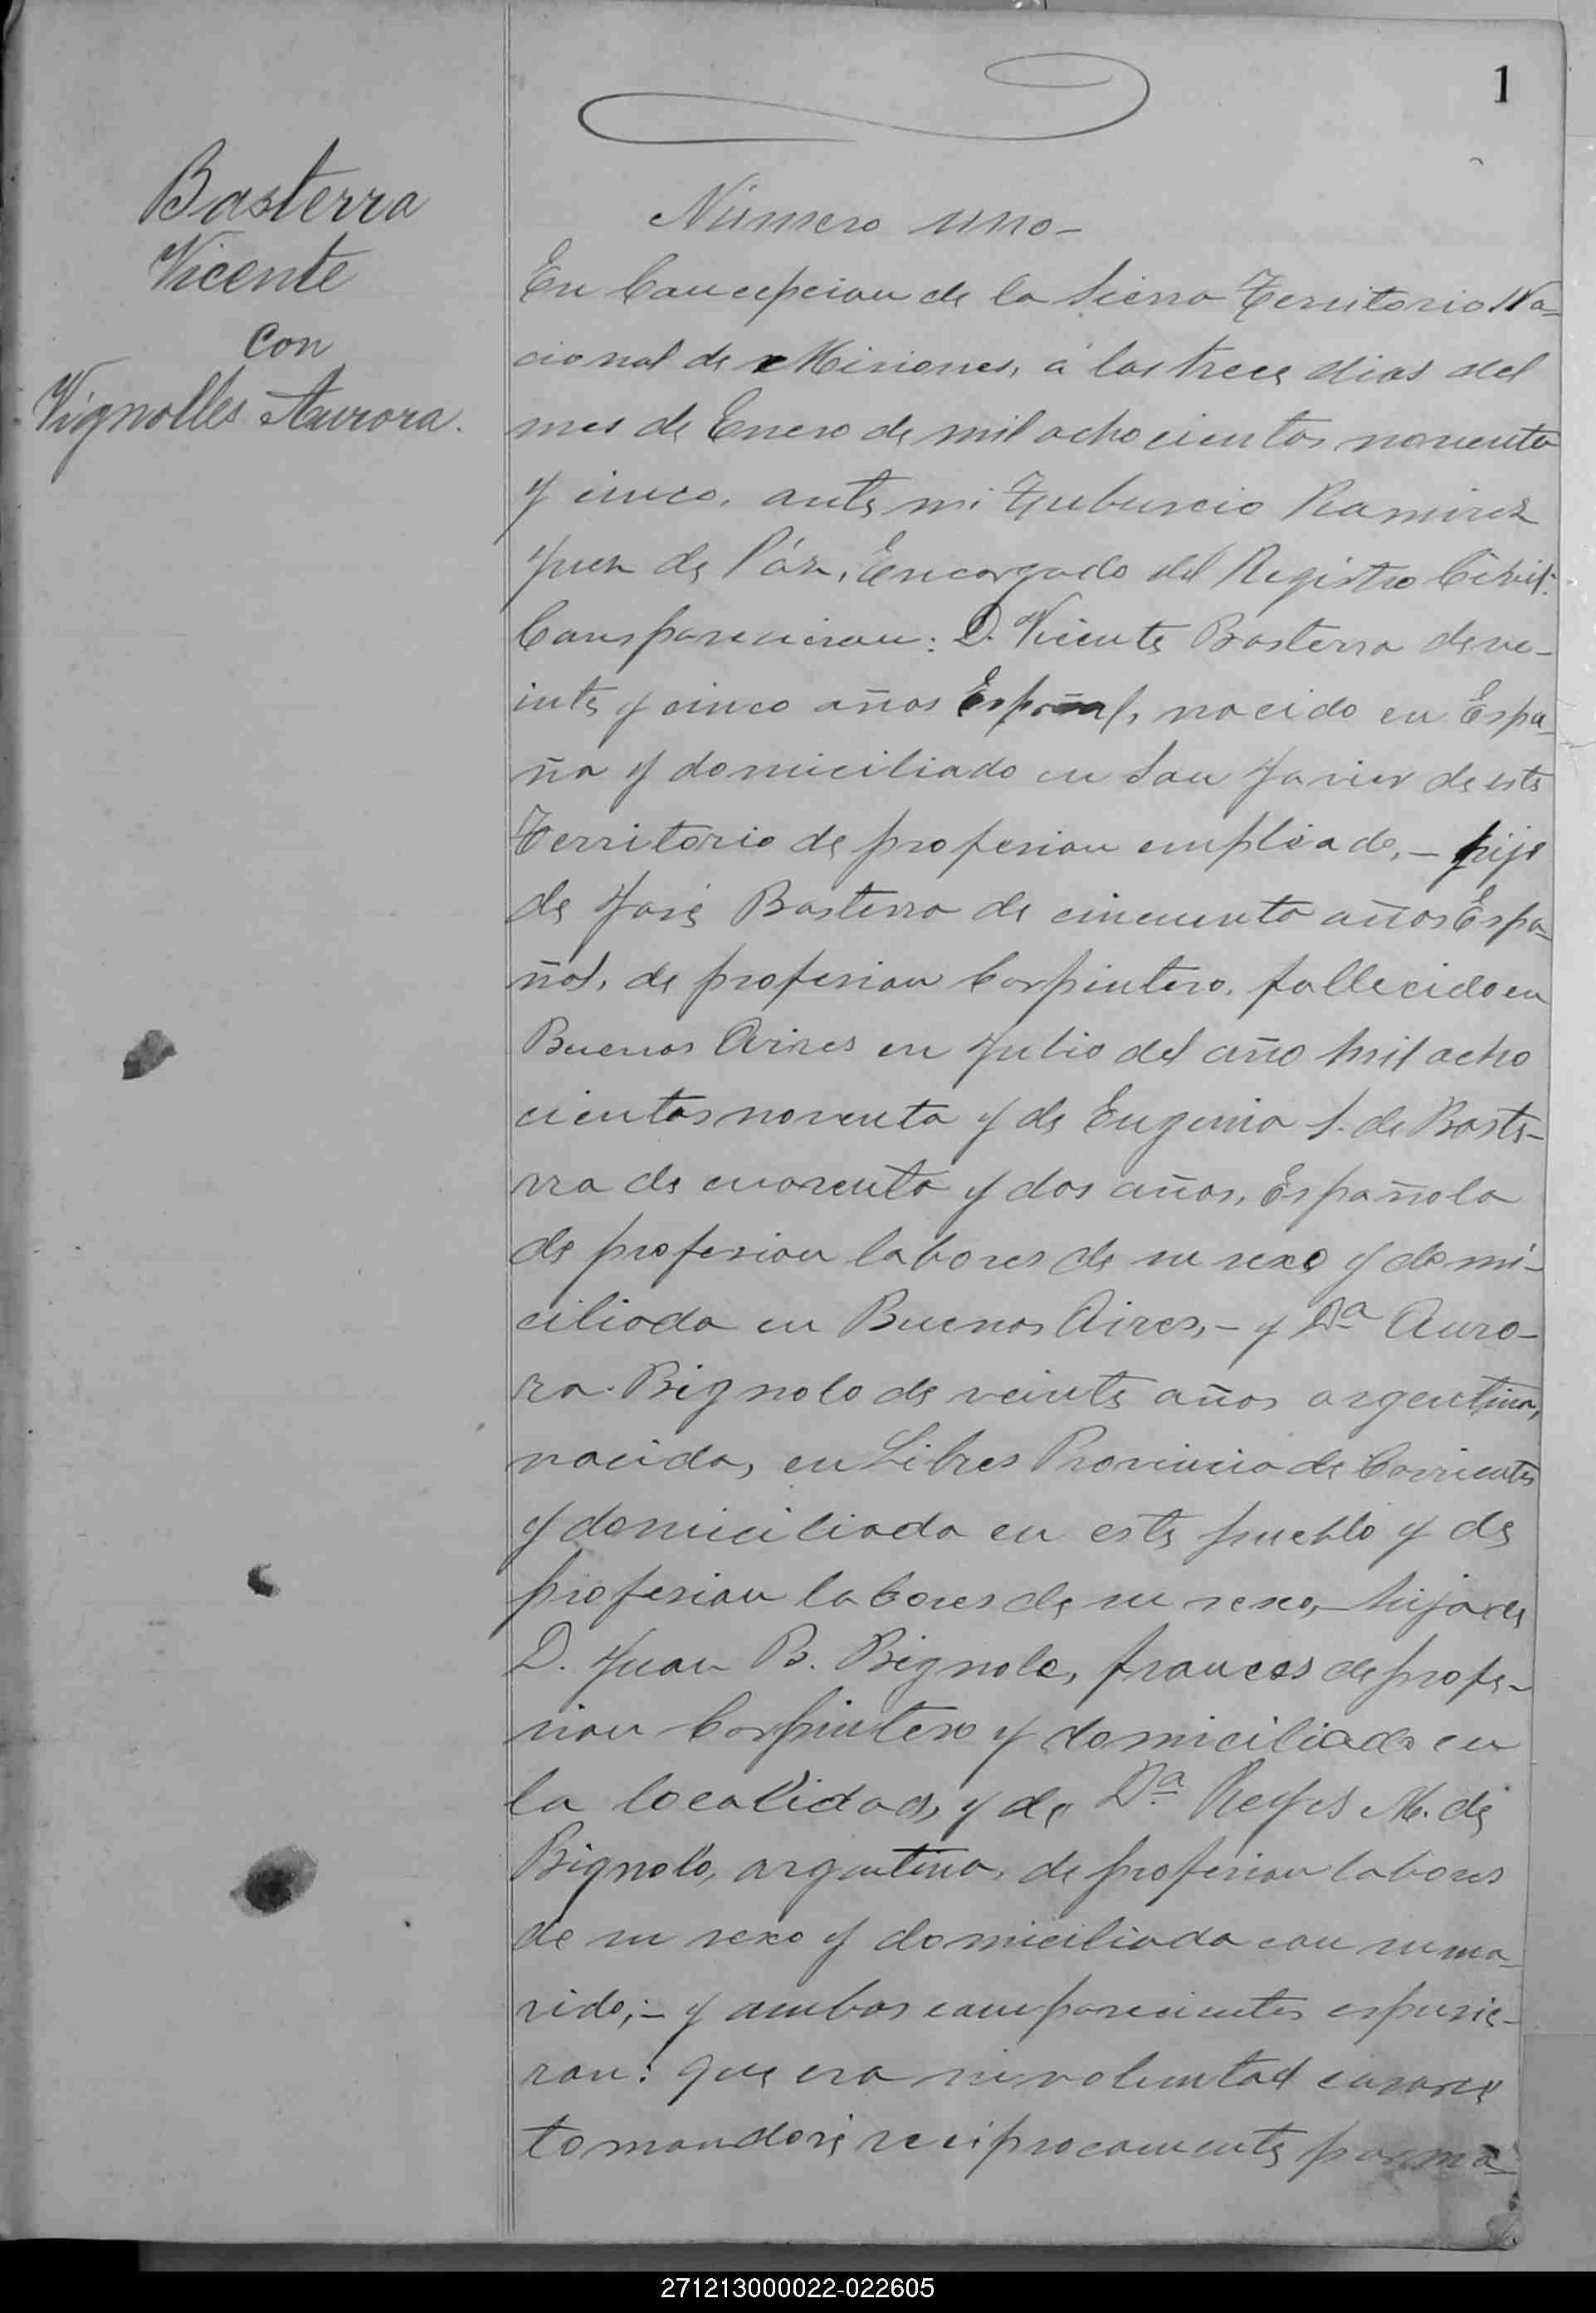 1
Basterra
Vicente
Con
Vignolles Aurora.
Número uno-
En Concepcion de la Sierra Territorio Na-
cional de Misiones, á los trece dias del
mes de Enero de mil ochocientos noventa
y cinco, ante mi Tiburcio Ramirez
Juez de Páz, Encargado del Registro Civil:
Comparecieron: D. Vicente Basterra de ve-
inte y cinco años Español, nacido en Espa-
ña y domiciliado en San Javier de este
Territorio de profesion empleado,- hijo
de José Basterra de cincuenta años Espa-
ñol, de profesion Carpintero, fallecido en
Buenos Aires en Julio del año mil ocho
cientos noventa y de Eugenia S. de Baste-
rra de cuarenta y dos años, Española
de profesion labores de su sexo y domi-
ciliada en Buenos Aires,- y Da Auro-
ra Bignolo de veinte años argentina,
nacida, en Libres Provincia de Corrientes
y domiciliada en este pueblo y de
profesion labores de su sexo,- hija de
D. Juan B. Bignolo, frances de profe-
sion Carpintero y domiciliado en
la localidad, y de Da Reyes M. de
Bignolo, argentina, de profesion labores
de su sexo y domiciliada con su ma-
rido;- y ambos comparecientes espusie-
ron: que era su voluntad casarse
tomandose reciprocamente por ma-
271213000022-022605